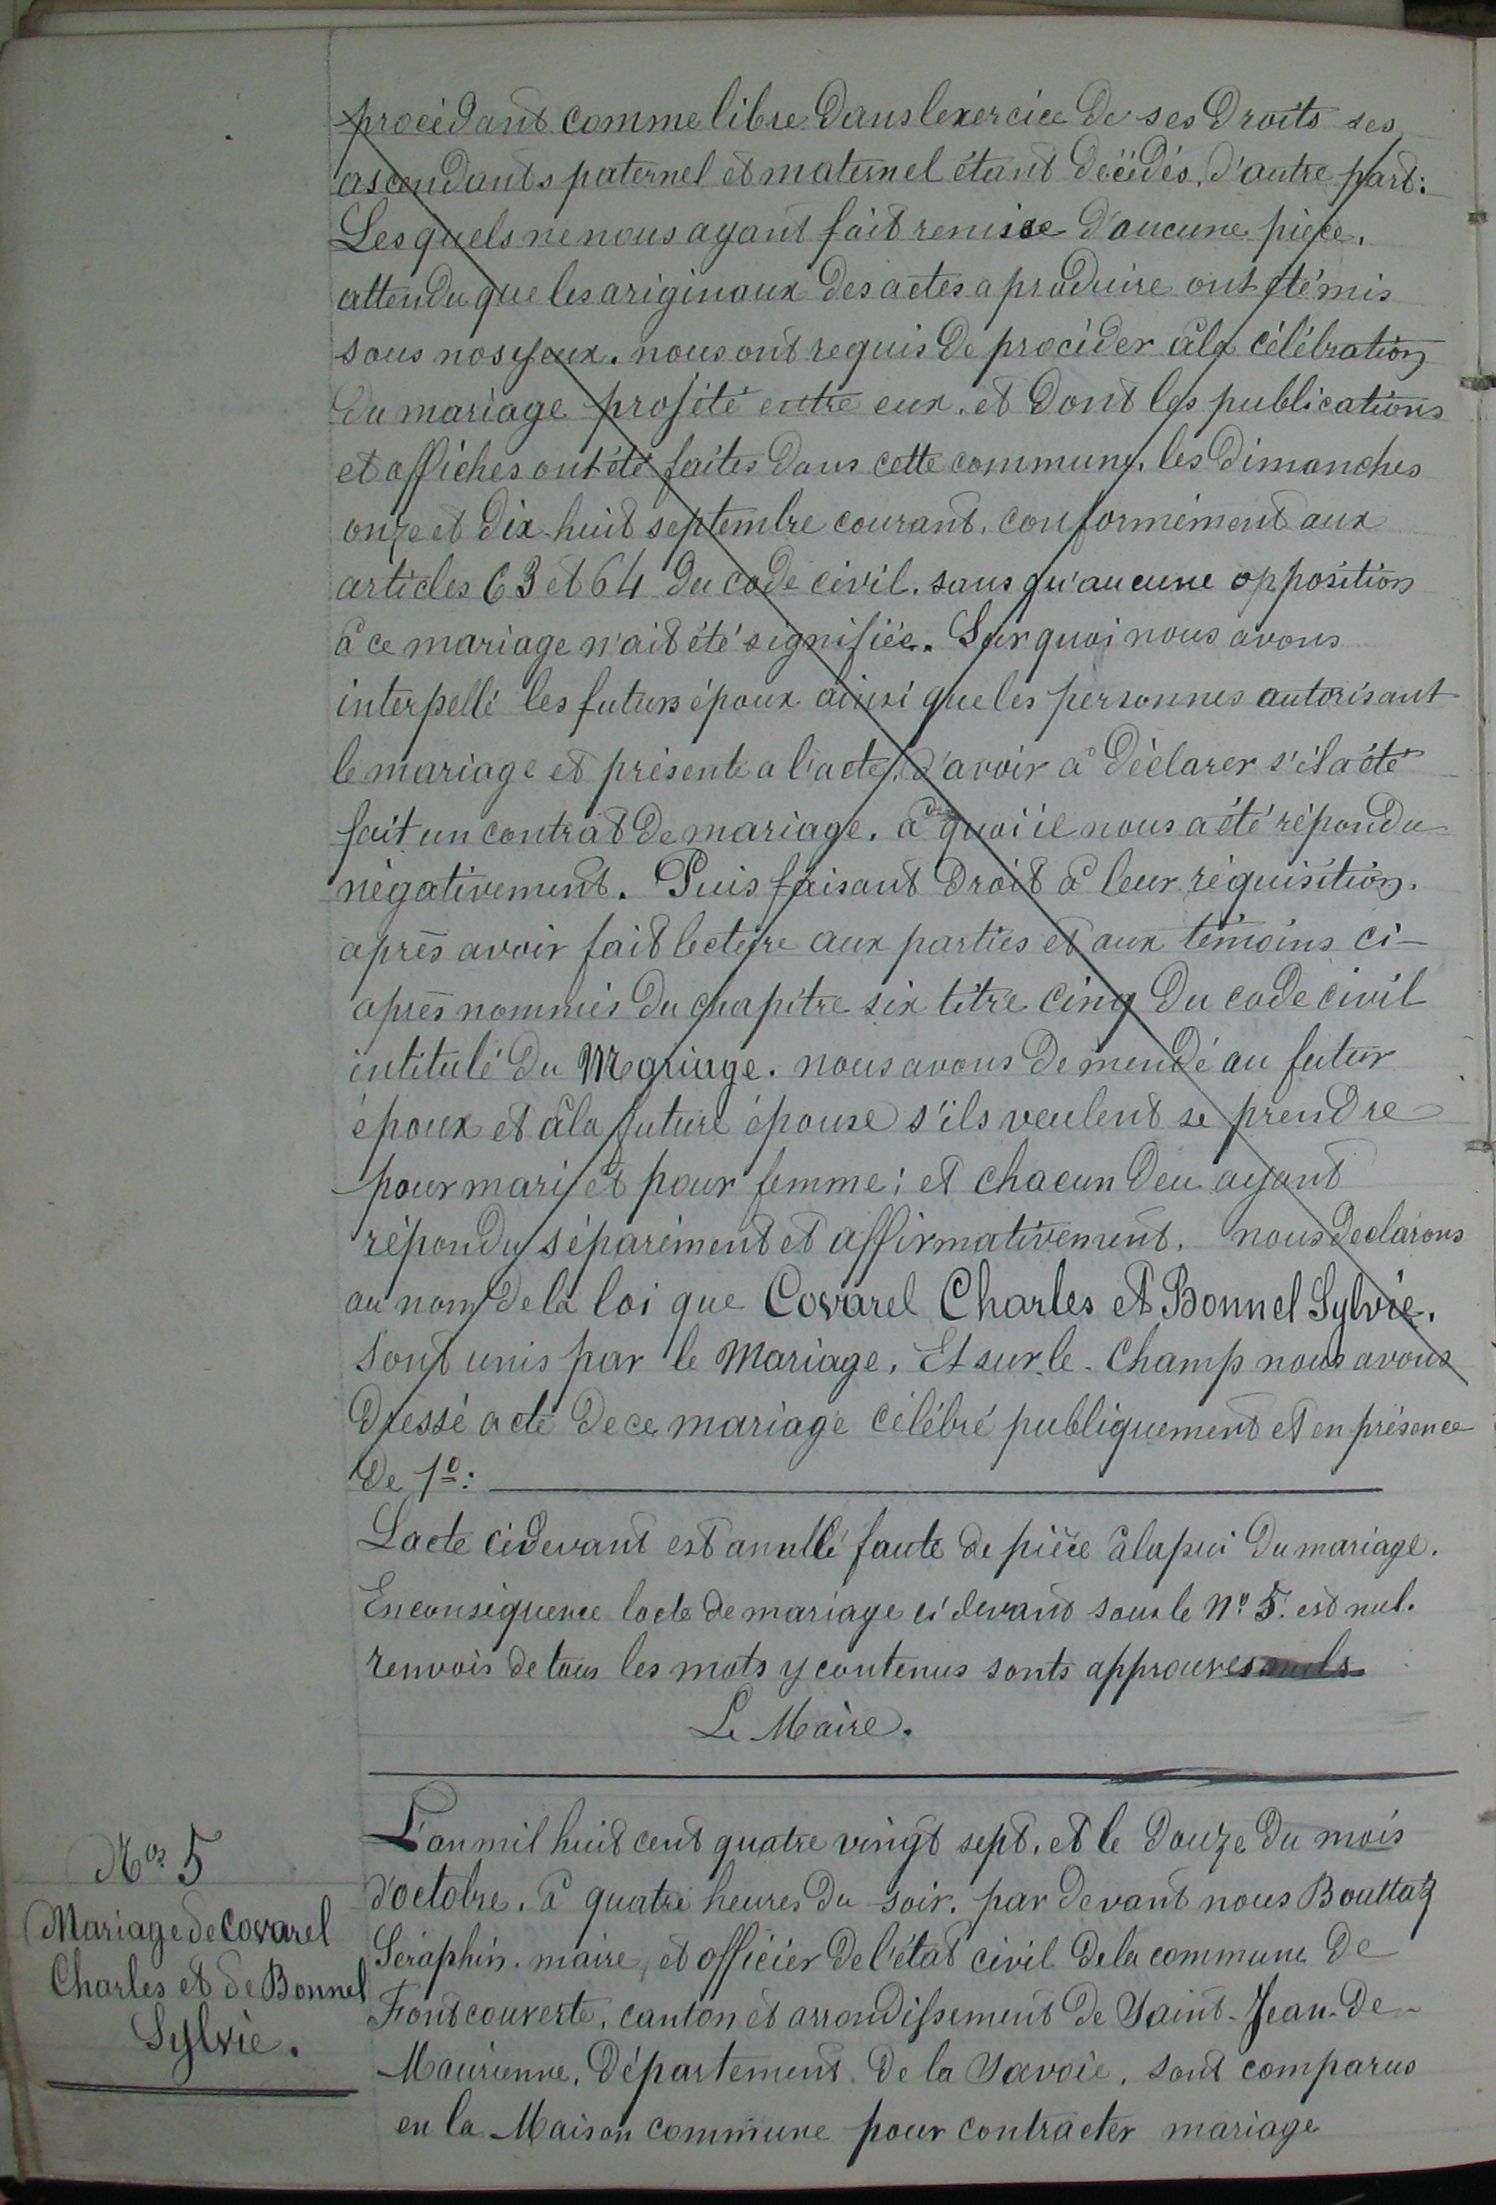 procédant comme libre dans lexercice de ses droits ses
ascendants paternel et maternel étant décédés, d'autre part:
Lesquels ne nous ayant fait remise d'aucune pièce,
attendu que les ariginaux des actes a produire ont été mis
sous nos yeux. nous ont requis de procéder à la célébration
du mariage projété entre eux, et dont les publications
et affiches ont été faites dans cette commune, les dimanches
onze et dix-huit septembre courant, conformément aux
articles 63 et 64 du code civil, sans qu'aucune opposition
à ce mariage n'ait été signifiée. Sur quoi nous avons
interpellé les futurs époux ainsi que les personnes autorisant
le mariage et présente a l'acte, d'avoir à déclarer s'il a été
fait un contrat de mariage, à quoi il nous a été répondu
négativement. Puis faisant droit à leur réquisition,
après avoir fait lecture aux parties et aux témoins ci-
après nommés du chapitre six titre cinq du code civil
intitulé du Mariage. nous avons demendé au futur
époux et à la future épouse s'ils veulent se prendre
pour mari et pour femme; et chacun deu ayant
répondu séparément et affirmativement, nous declarons
au nom de la loi que Covarel Charles et Bonnel Sylvie,
sont unis par le Mariage, Et sur-le-Champ nous avons
dressé acte de ce mariage célébré publiquement et en présence
de 1º:
Lacte cidevant est anullé faute de pièce à lapui du mariage.
En conséquence lacte de mariage ci devant sous le Nº 5. est nul.
renvois de tous les mots y contenus sonts approuvés nuls
Le Maire.
Nos 5
Mariage de Covarel
Charles et de Bonnel
Sylvie.
L'an mil huit cent quatre vingt sept, et le douze du mois
d'octobre, à quatre heures du soir, par devant nous Bouttaz
Séraphin, maire, et officier de l'état civil de la commune de
Fontcouverte, canton et arrondissement de Saint-Jean-de-
Maurienne, Département de la Savoie, sont comparus
en la Maison commune pour contracter mariage